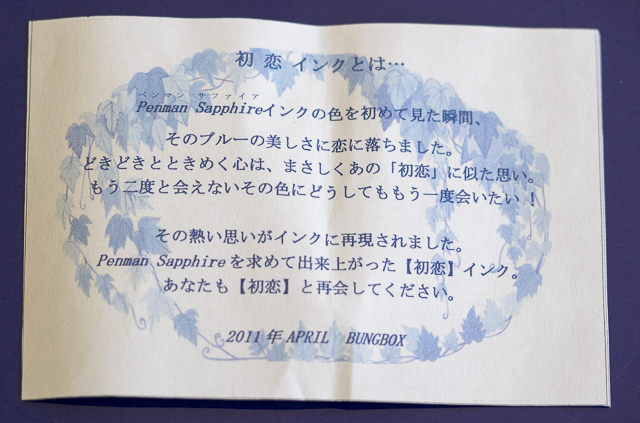 初恋インクとは…
ペンマン サファイア
Penman Sapphireインクの色を初めて見た瞬間、
そのブルーの美しさに恋に落ちました。
どきどきとときめく心は、まさしくあの「初恋」に似た思い。
もう二度と会えないその色にどうしてももう一度会いたい！
その熱い思いがインクに再現されました。
Penman Sapphireを求めて出来上がった【初恋】インク。
あなたも【初恋】と再会してください。
2011年APRIL BUNGBOX